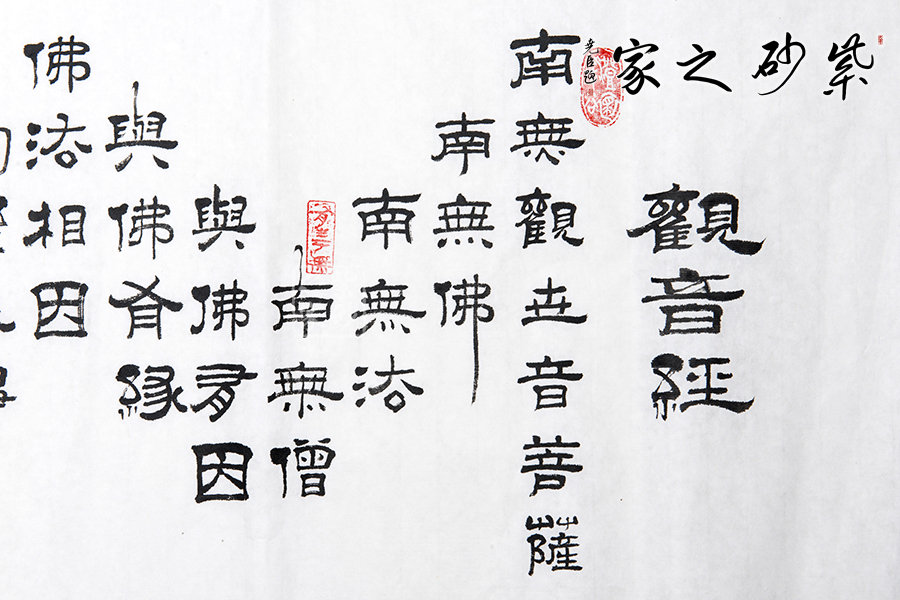 紫砂之家
尧臣题
觀音經
南無觀世音菩薩
南無佛
南無法
南無僧
與佛有因
與佛有緣
佛法相因